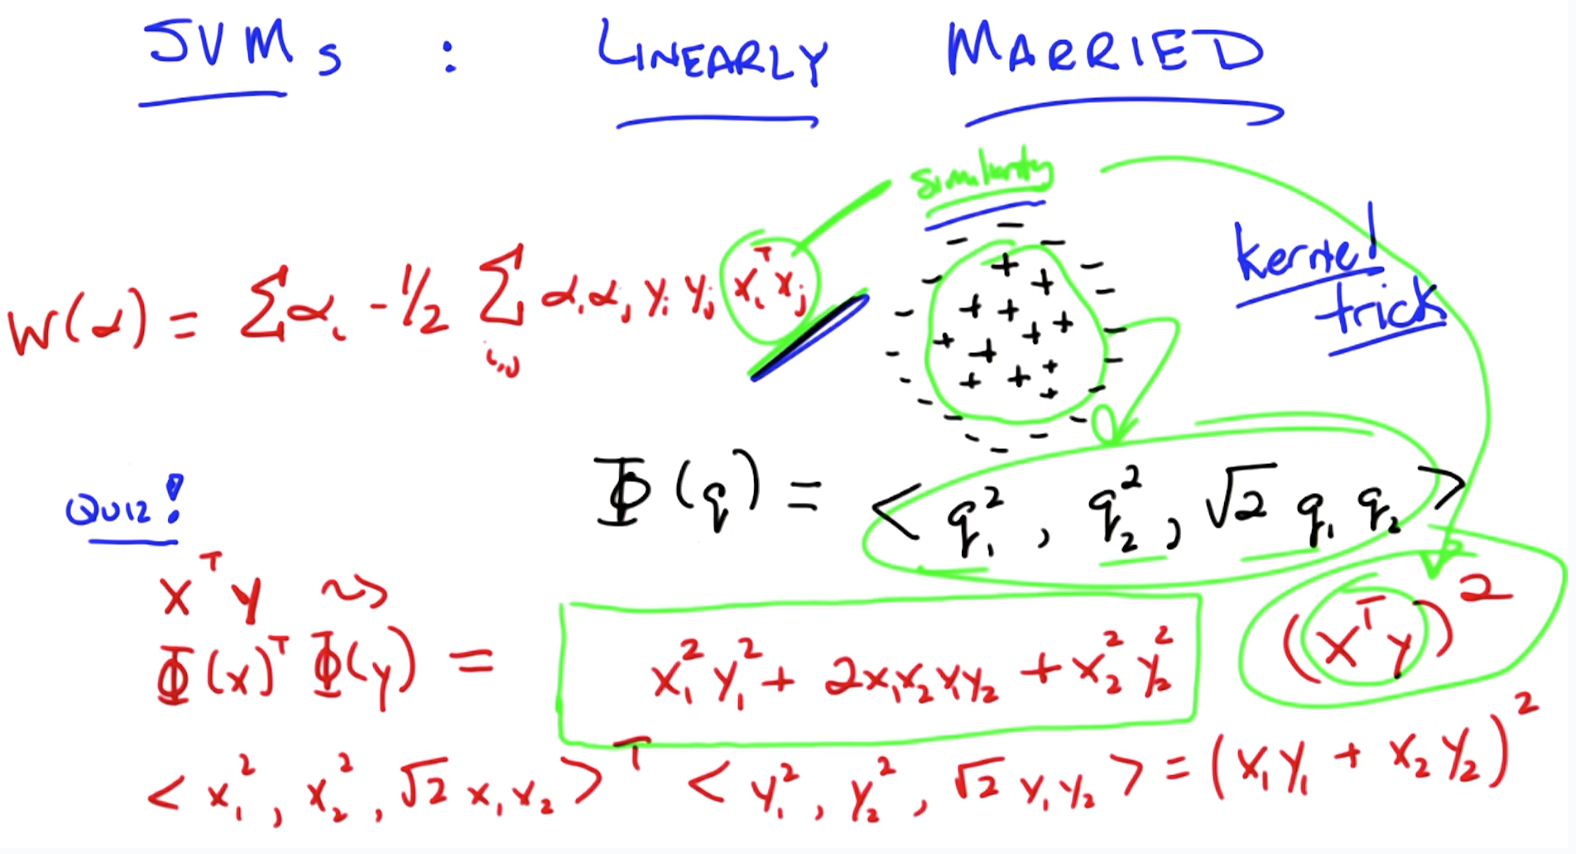 SVMs : LINEARLY MARRIED
similarity
kernel trick
W(α) = Σαᵢ - 1/2 Σᵢ,ⱼ αᵢαⱼ yᵢ yⱼ xᵢᵀxⱼ
Φ(q) = < q₁², q₂², √2 q₁ q₂ >
QUIZ!
xᵀy ⇝
Φ(x)ᵀ Φ(y) = x₁²y₁² + 2x₁x₂y₁y₂ + x₂²y₂² (xᵀy)²
< x₁², x₂², √2 x₁x₂ >ᵀ < y₁², y₂², √2 y₁y₂ > = (x₁y₁ + x₂y₂)²